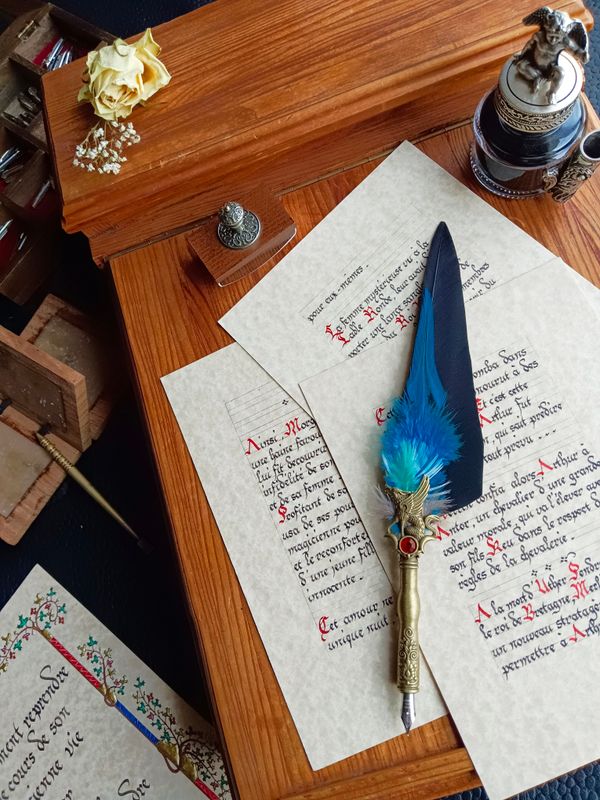 pour eux-mêmes.
La femme mystérieuse vu à la
Table Ronde leur avait
membres
porter une lance sangl
du
du Ro
Ainsi, Morg
une haine farou
lui fit découvrir
infidélité de son
et de sa femme
Profitant de sa
usa de ses pouv
magicienne pour
et le réconforter
d'une jeune fill
innocente.
Cet amour ne
unique nuit
omba dans
mourut à des
Et c'est cette
Arthur fut
, qui sait prédire
tout prévu
confia alors Arthur à
Antor, un chevalier d'une grande
valeur morale, qui va l'élever avec
son fils Keu dans le respect des
règles de la chevalerie.
A la mort Uther Pendr
le roi de Bretagne, Merl
un nouveau stratag
permettre à Arth
ment reprendre
cours de son
ienne vie
dre